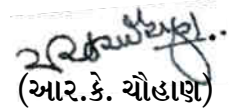 (આર.કે. ચૌહાણ)